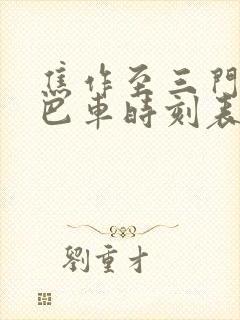 焦作至三門
巴車時刻表
劉重才